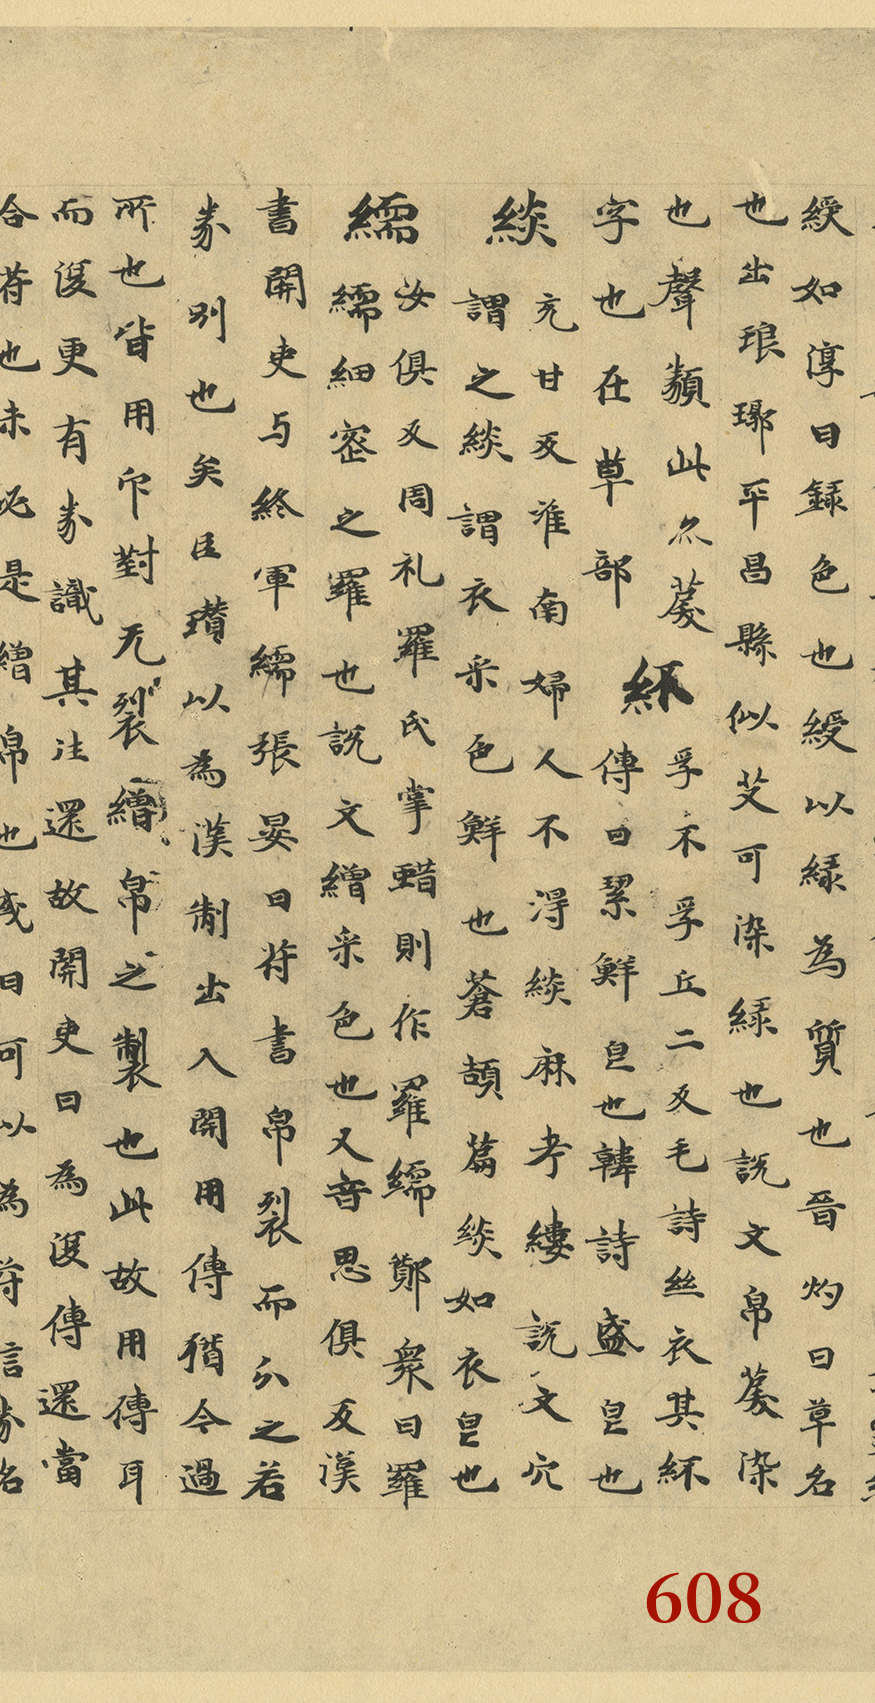 綬如淳曰録色也綬以緑為質也晉灼曰草名
也出琅瑘平昌縣似艾可染緑也說文帛䓞染
也聲纇此亦䓞
紑孚不孚丘二反毛詩絲衣其紑
傳曰絜鮮皃也韓詩盛皃也
字也在草部
緂充甘反淮南婦人不得緂麻考縷說文穴
謂之緂謂衣采色鮮也蒼頡篇緂如衣皃也
繻汝俱反周礼羅氏掌蜡則作羅繻鄭衆曰羅
繻細密之羅也說文繒采色也又音思俱反漢
書關吏与終軍繻張晏曰符書帛裂而分之若
券別也矣臣瓚以為漢制出入關用傳猶今過
所也皆用印對无裂繒帛之製也此故用傳耳
而復更有券識其注還故關吏曰為復傳還當
合符也未必是繒帛也或曰可以為符信券名
608